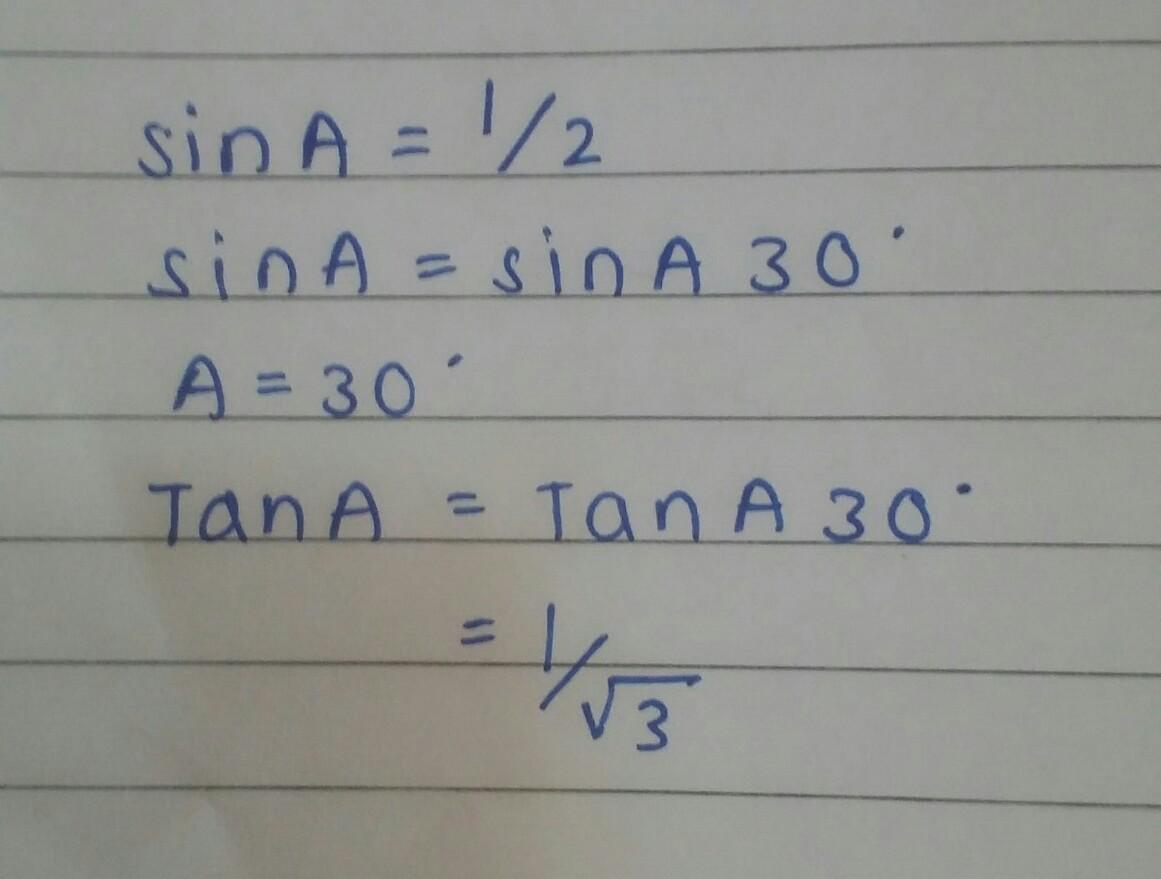 sin A = 1/2
sin A = sin A 30°
A = 30°
Tan A = Tan A 30°
= 1/√3